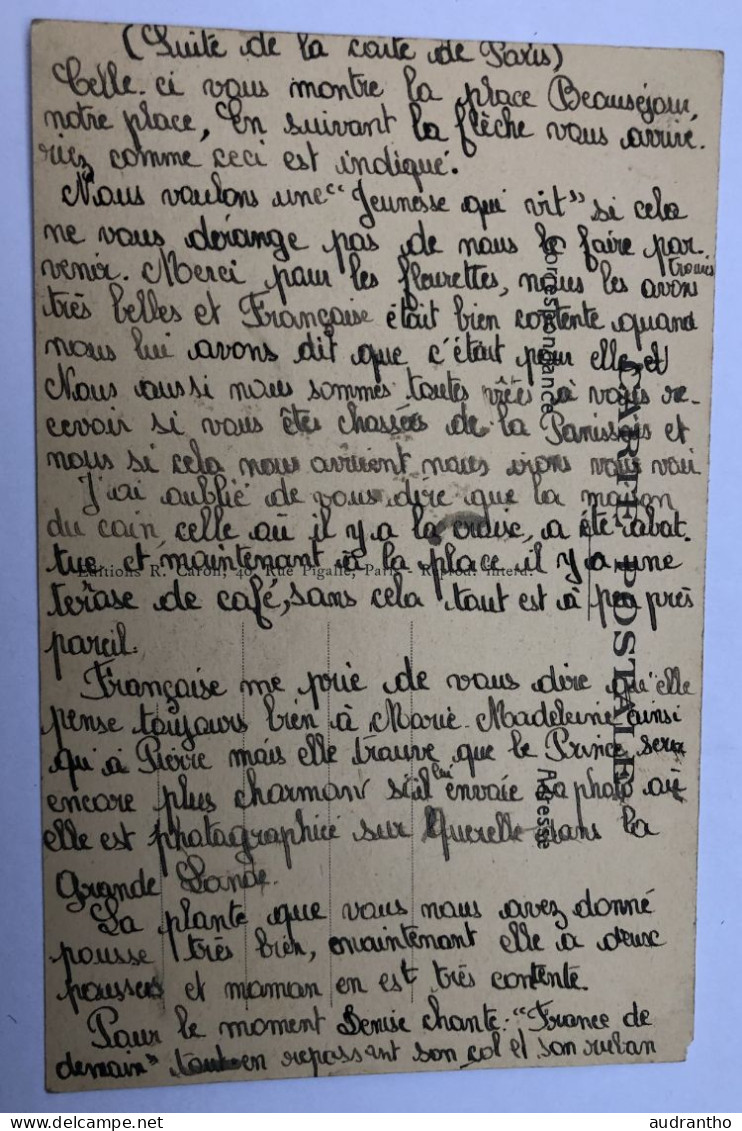 (Suite de la carte de Paris)
Celle-ci vous montre la place Beauséjour
notre place, En suivant la flèche vous arrive-
riez comme ceci est indiqué.
Nous voulons une "Jeunesse qui vit" si cela
ne vous dérange pas de nous la faire par-
venir. Merci pour les fleurettes, nous les avons trouvés
très belles et Françoise était bien contente quand
nous lui avons dit que c'était pour elle et
Nous aussi nous sommes toutes prêtes à vous re-
cevoir si vous êtes chassés de la et
nous si cela nous arrivent nous irons vous voir
J'ai oublié de vous dire que la maison
du coin, celle où il y a la croix, a été abat-
tue et maintenant à la place il y a une
terrase de café, sans cela tout est à peu près
pareil.
Françoise me prie de vous dire qu'elle
pense toujours bien à Marie-Madeleine ainsi
qu'à Pierre mais elle trouve que le Prince sera
encore plus charmant s'il lui envoie sa photo où
elle est photographiée sur Querelle dans la
Grande Lande.
La plante que vous nous avez donné
pousse très bien, maintenant elle a deux
pousses et maman en est très contente.
Pour le moment Denise chante: "France de
demain" tout en repassant son col et son ruban
CARTE POSTALE
Correspondance
Adresse
Editions R. Caron, 40, Rue Pigalle, Paris - Reprod. interd.
audrantho